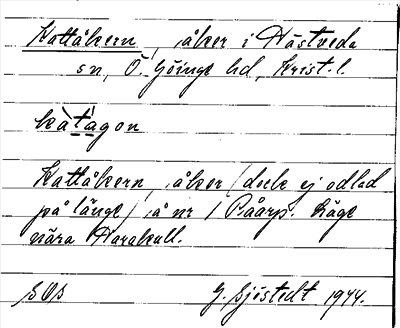 Kattåkern, åker i Hästveda
sn, Ö. Göinge hd, Krist. l.
kàtágon
Kattåkern, åker (dock ej odlad
på länge) å nr 1 Råarp. Läge
nära Harakull.
SOS G. Sjöstedt 1944.